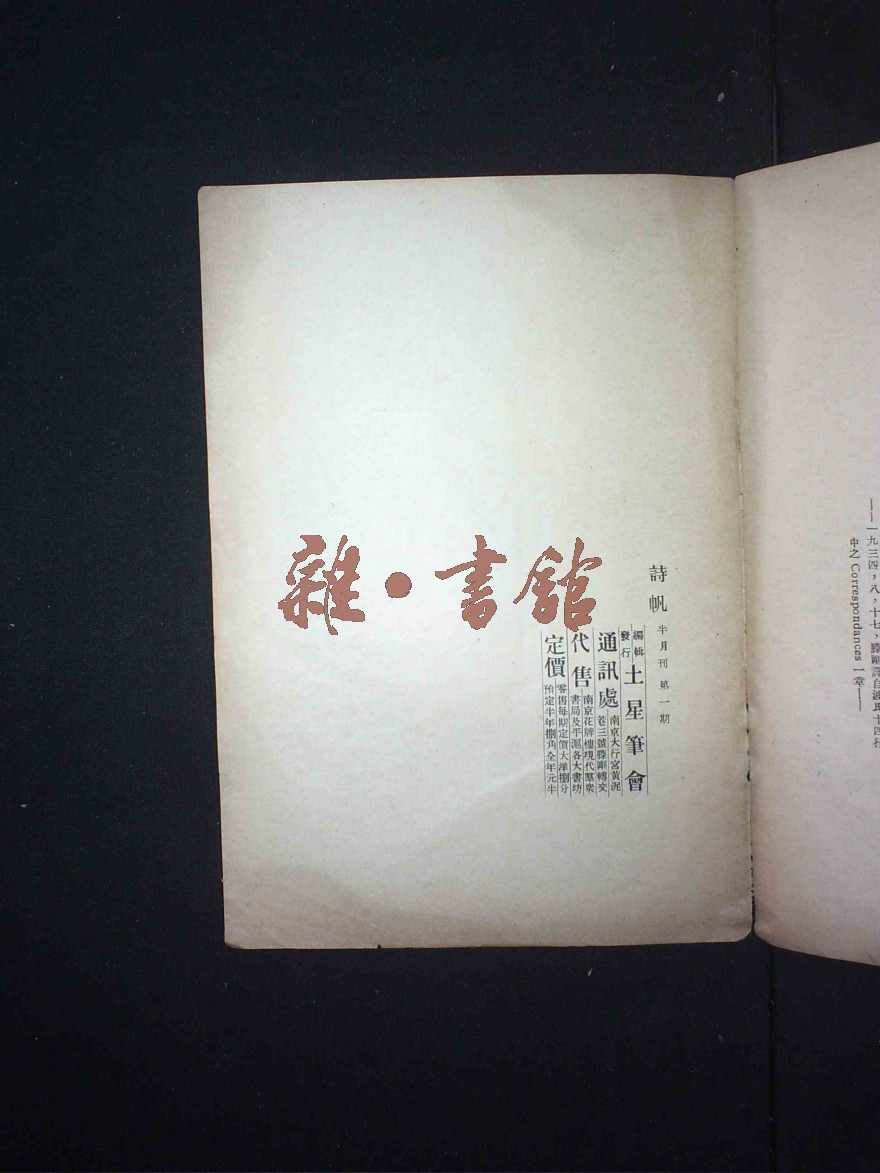 ——一九三四，八，十七，滕剛譯自波氏十四行
中之 Correspondances 一章——
詩帆 半月刊 第一期
編輯
發行
土星筆會
通訊處
南京大行宮黃泥
巷三號滕剛轉交
代售
南京花牌樓現代羣衆
書局及平滬各大書坊
定價
零售每期定價大洋捌分
預定半年捌角全年元半
雜·書館